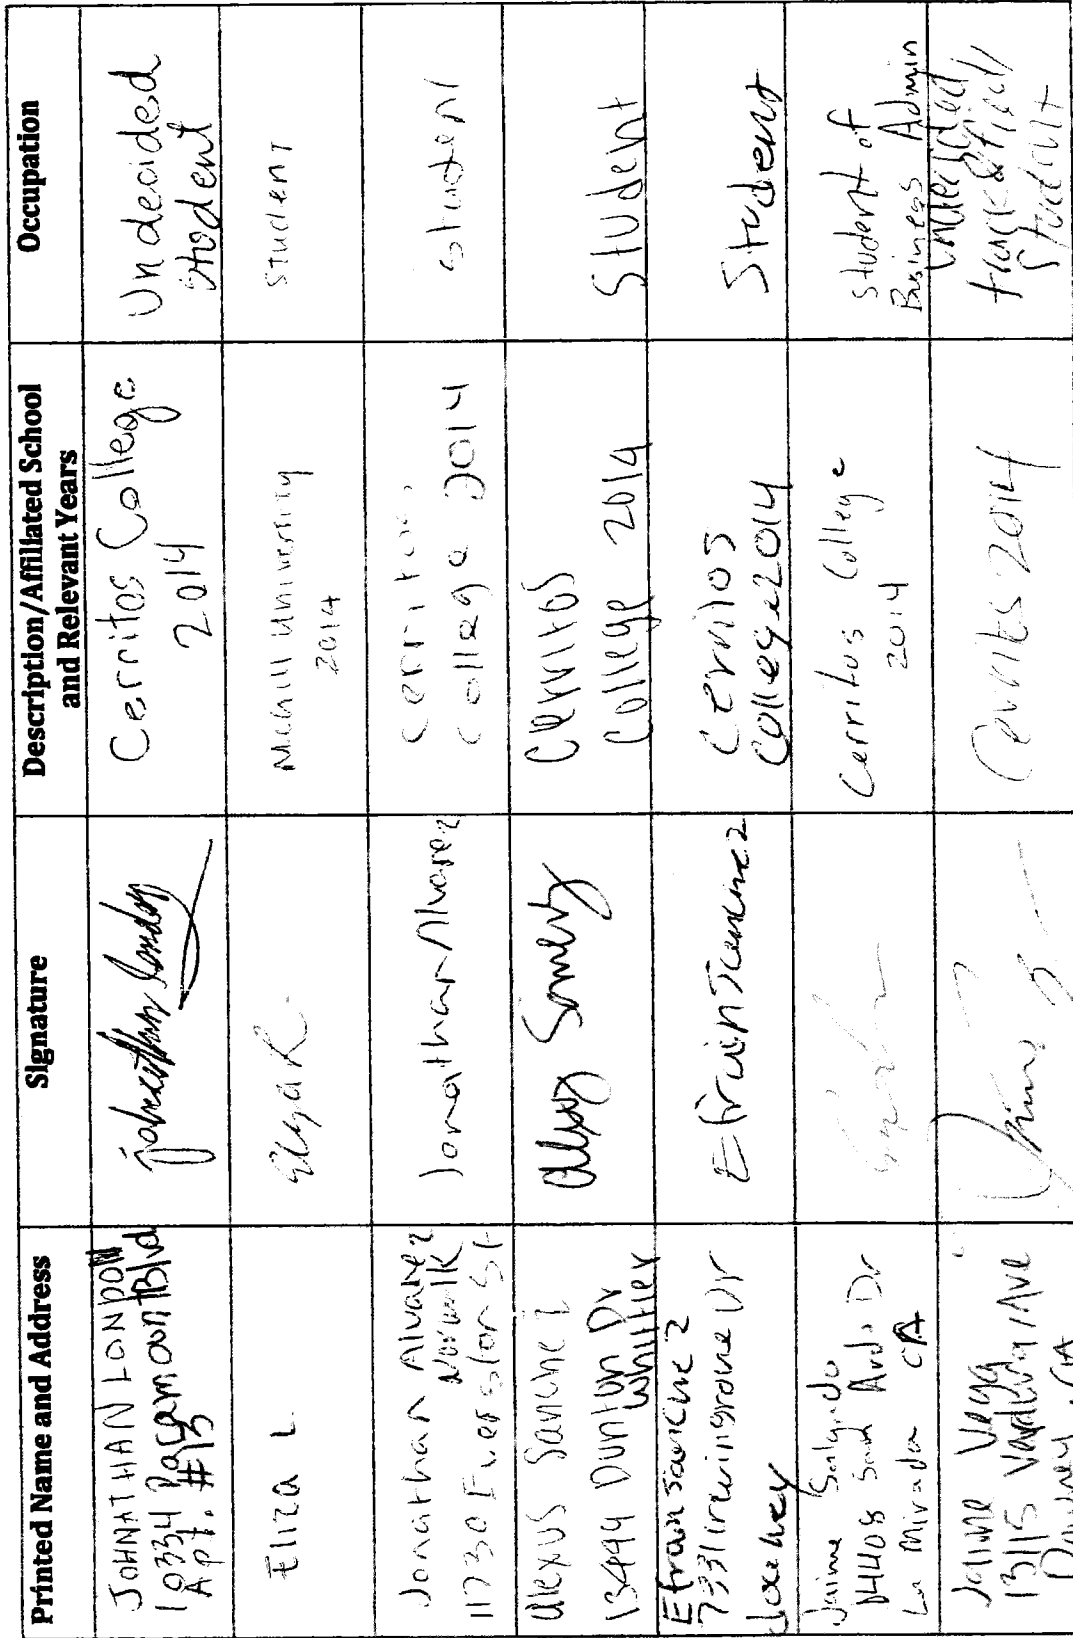 Printed Name and Address
Signature
Description/Affiliated School
and Relevant Years
Occupation
JOHNATHAN LONDON
10334 Paramount Blvd
Apt. #13
Cerritos College
2014
Undecided
student
Eliza L
Eliza R.
McGill University
2014
Student
Jonathan Alvarez
Norwalk
Jonathan Alvarez
Cerritos
College 2014
Student
Alexus Sanchez
13499 Dunton Dr
Whittier
Cerritos
College 2014
Student
Efrain Sanchez
Efrain Sanchez
Cerritos
College 2014
Student
Jaime Salgado
14408 San Ardo Dr
La Mirada CA
Cerritos College
2014
Student of
Business Admin
Jaime Vega
Downey, CA
Cerritos 2014
Undecided
track & field
Student